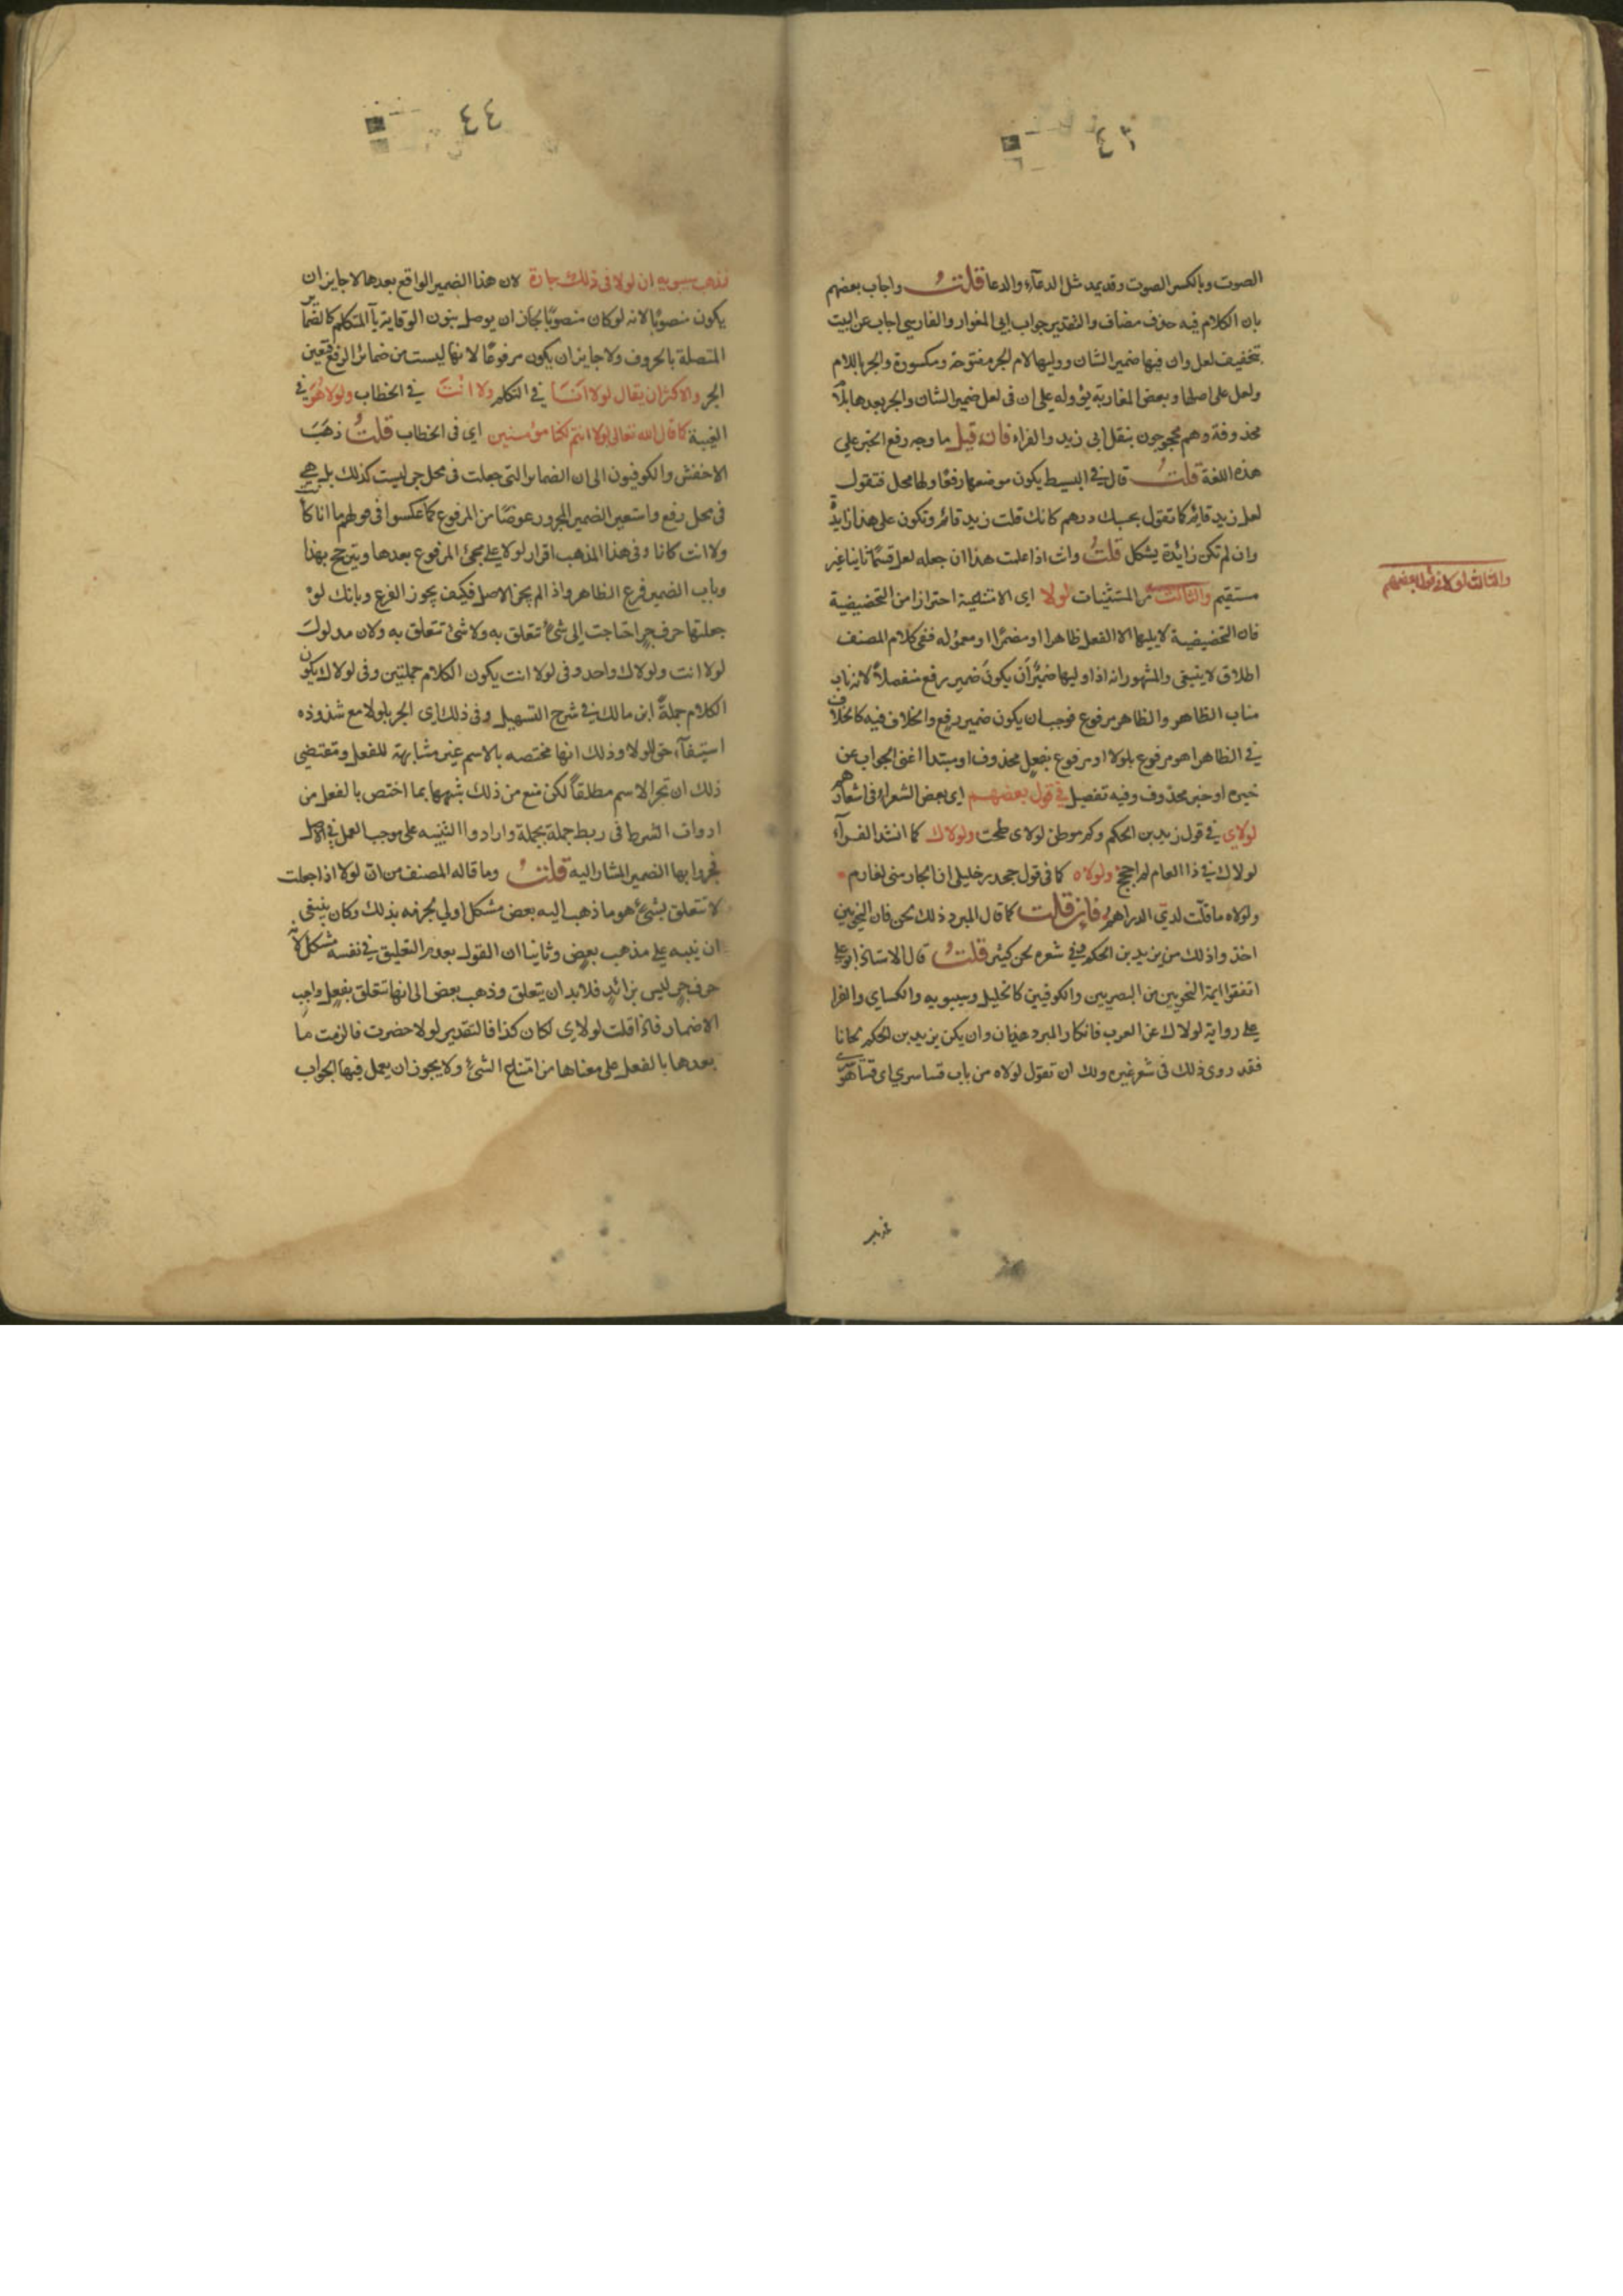 ٤٣
الصوت وبالكسر الصوت وقد يمد مثل الدعاء والدعا قلت واجاب بعضهم
بان الكلام فيه حذف مضاف والتقدير جواب ابي المغوار والفارسي اجاب عن البيت
بتخفيف لعل وان فيها ضمير الشان ووليها لام الجر مفتوحة ومكسورة والجر باللام
ولعل على اصلها وبعض المغاربة يؤوله على ان في لعل ضمير الشان والجر بعدها بلام
محذوفة وهم محجوجون بنقل ابي زيد والفراء فان قيل ما وجه رفع الخبر على
هذه اللغة قلت قال في البسيط يكون موضعها رفعا ولها محل فتقول
لعل زيد قائم كما تقول بحسبك درهم كانك قلت زيد قائم وتكون على هذا زايدة
وان لم تكن زائدة يشكل قلت وانت اذا علمت هذا ان جعله لعل قسما ثانيا غير
مستقيم والثالث من المستثنيات لولا اى الامتناعية احترازا من التحضيضية
فان التحضيضية لا يليها الا الفعل ظاهرا او مضمرا او معموله ففي كلام المصنف
اطلاق لا ينبغى والمشهور انه اذا وليها ضمير أن يكون ضمير رفع منفصلا لانه ناب
مناب الظاهر والظاهر مرفوع فوجب ان يكون ضمير رفع والخلاف فيه كالخلاف
في الظاهر اهو مرفوع بلولا او مرفوع بفعل محذوف او مبتدا اغنى الجواب عن
خبره او خبره محذوف وفيه تفصيل في قول بعضهم اى بعض الشعراء في اشعارهم
لولاي في قول زيد بن الحكم وكم موطن لولاى طحت ولولاك كما انشد الفراء
لولاك في ذا العام لم احجج ولولاه كما في قول جحدر خليلى ان الجار منى لغارم
ولولاه ما قلت لدي الدراهم فان قلت كما قال المبرد ذلك لحن فان النحويين
اخذوا ذلك من يزيد بن الحكم وفي شعره لحن كثير قلت قال الاستاذ ابو علي
اتفقوا ايمة النحويين من البصريين والكوفيين كالخليل وسيبويه والكساي والفرا
على رواية لولاك عن العرب فانكار المبرد هذيان وان يكن يزيد بن الحكم لحانا
فقد روى ذلك في شعر غيره ولك ان تقول لولاه من باب
والثالث لولا في قول بعضهم
٤٤
فذهب سيبويه ان لولا في ذلك جارة لان هذا الضمير الواقع بعدها لا جايز ان
يكون منصوبا لانه لو كان منصوبا لجاز ان يوصل بنون الوقاية ياء المتكلم كالضمائر
المتصلة بالحروف ولا جايز ان يكون مرفوعا لانها ليست من ضمائر الرفع فتعين
الجر والاكثر ان يقال لولا انا في التكلم ولا انت في الخطاب ولولا هو في
الغيبة كما قال الله تعالى لولا انتم لكنا مؤمنين اى فى الخطاب قلت ذهب
الاخفش والكوفيون الى ان الضمائر التى جعلت فى محل جر ليست كذلك بل هي
فى محل رفع واستعير الضمير المجرور عوضا من المرفوع كما عكسوا في قولهم ما انا كانت
ولا انت كانا وفى هذا المذهب اقرار لولا على مجئ المرفوع بعدها ويترجح بهذا
وباب الضمير فرع الظاهر واذ الم يجز الاصل فكيف يجوز الفرع وبانك لو
جعلتها حرف جر احتاجت إلى شئ تتعلق به ولا شئ تتعلق به ولان مدلول
لولا انت ولولاك واحد وفى لولا انت يكون الكلام جملتين وفى لولاك يكون
الكلام جملة ابن مالك في شرح التسهيل وفى ذلك اى الجر بلولا مع شذوذه
استيفاء حق للولا وذلك انها مختصه بالاسم غير مشابهة للفعل ومقتضى
ذلك ان تجر الاسم مطلقا لكن منع من ذلك شبهها بما اختص بالفعل من
ادوات الشرط فى ربط جملة بجملة وارادوا التنبيه على موجب العمل في الاصل
فجروا بها الضمير المشار اليه قلت وما قاله المصنف من ان لولا اذا جعلت
لا تتعلق بشئ هو ما ذهب اليه بعض مشكل اولي بذلك وكان ينبغى
ان ينبه على مذهب بعض وثانيا ان القول بعدم التعليق في نفسه مشكل لانه
حرف جر ليس بزائد فلا بد ان يتعلق وذهب بعض الى انها تتعلق بفعل واجب
الاضمار فاذا قلت لولاى لكان كذا فالتقدير لولا حضرت فالزمت ما
بعدها بالفعل على معناها من امتناع الشئ ولا يجوز ان يعمل فيها الجواب